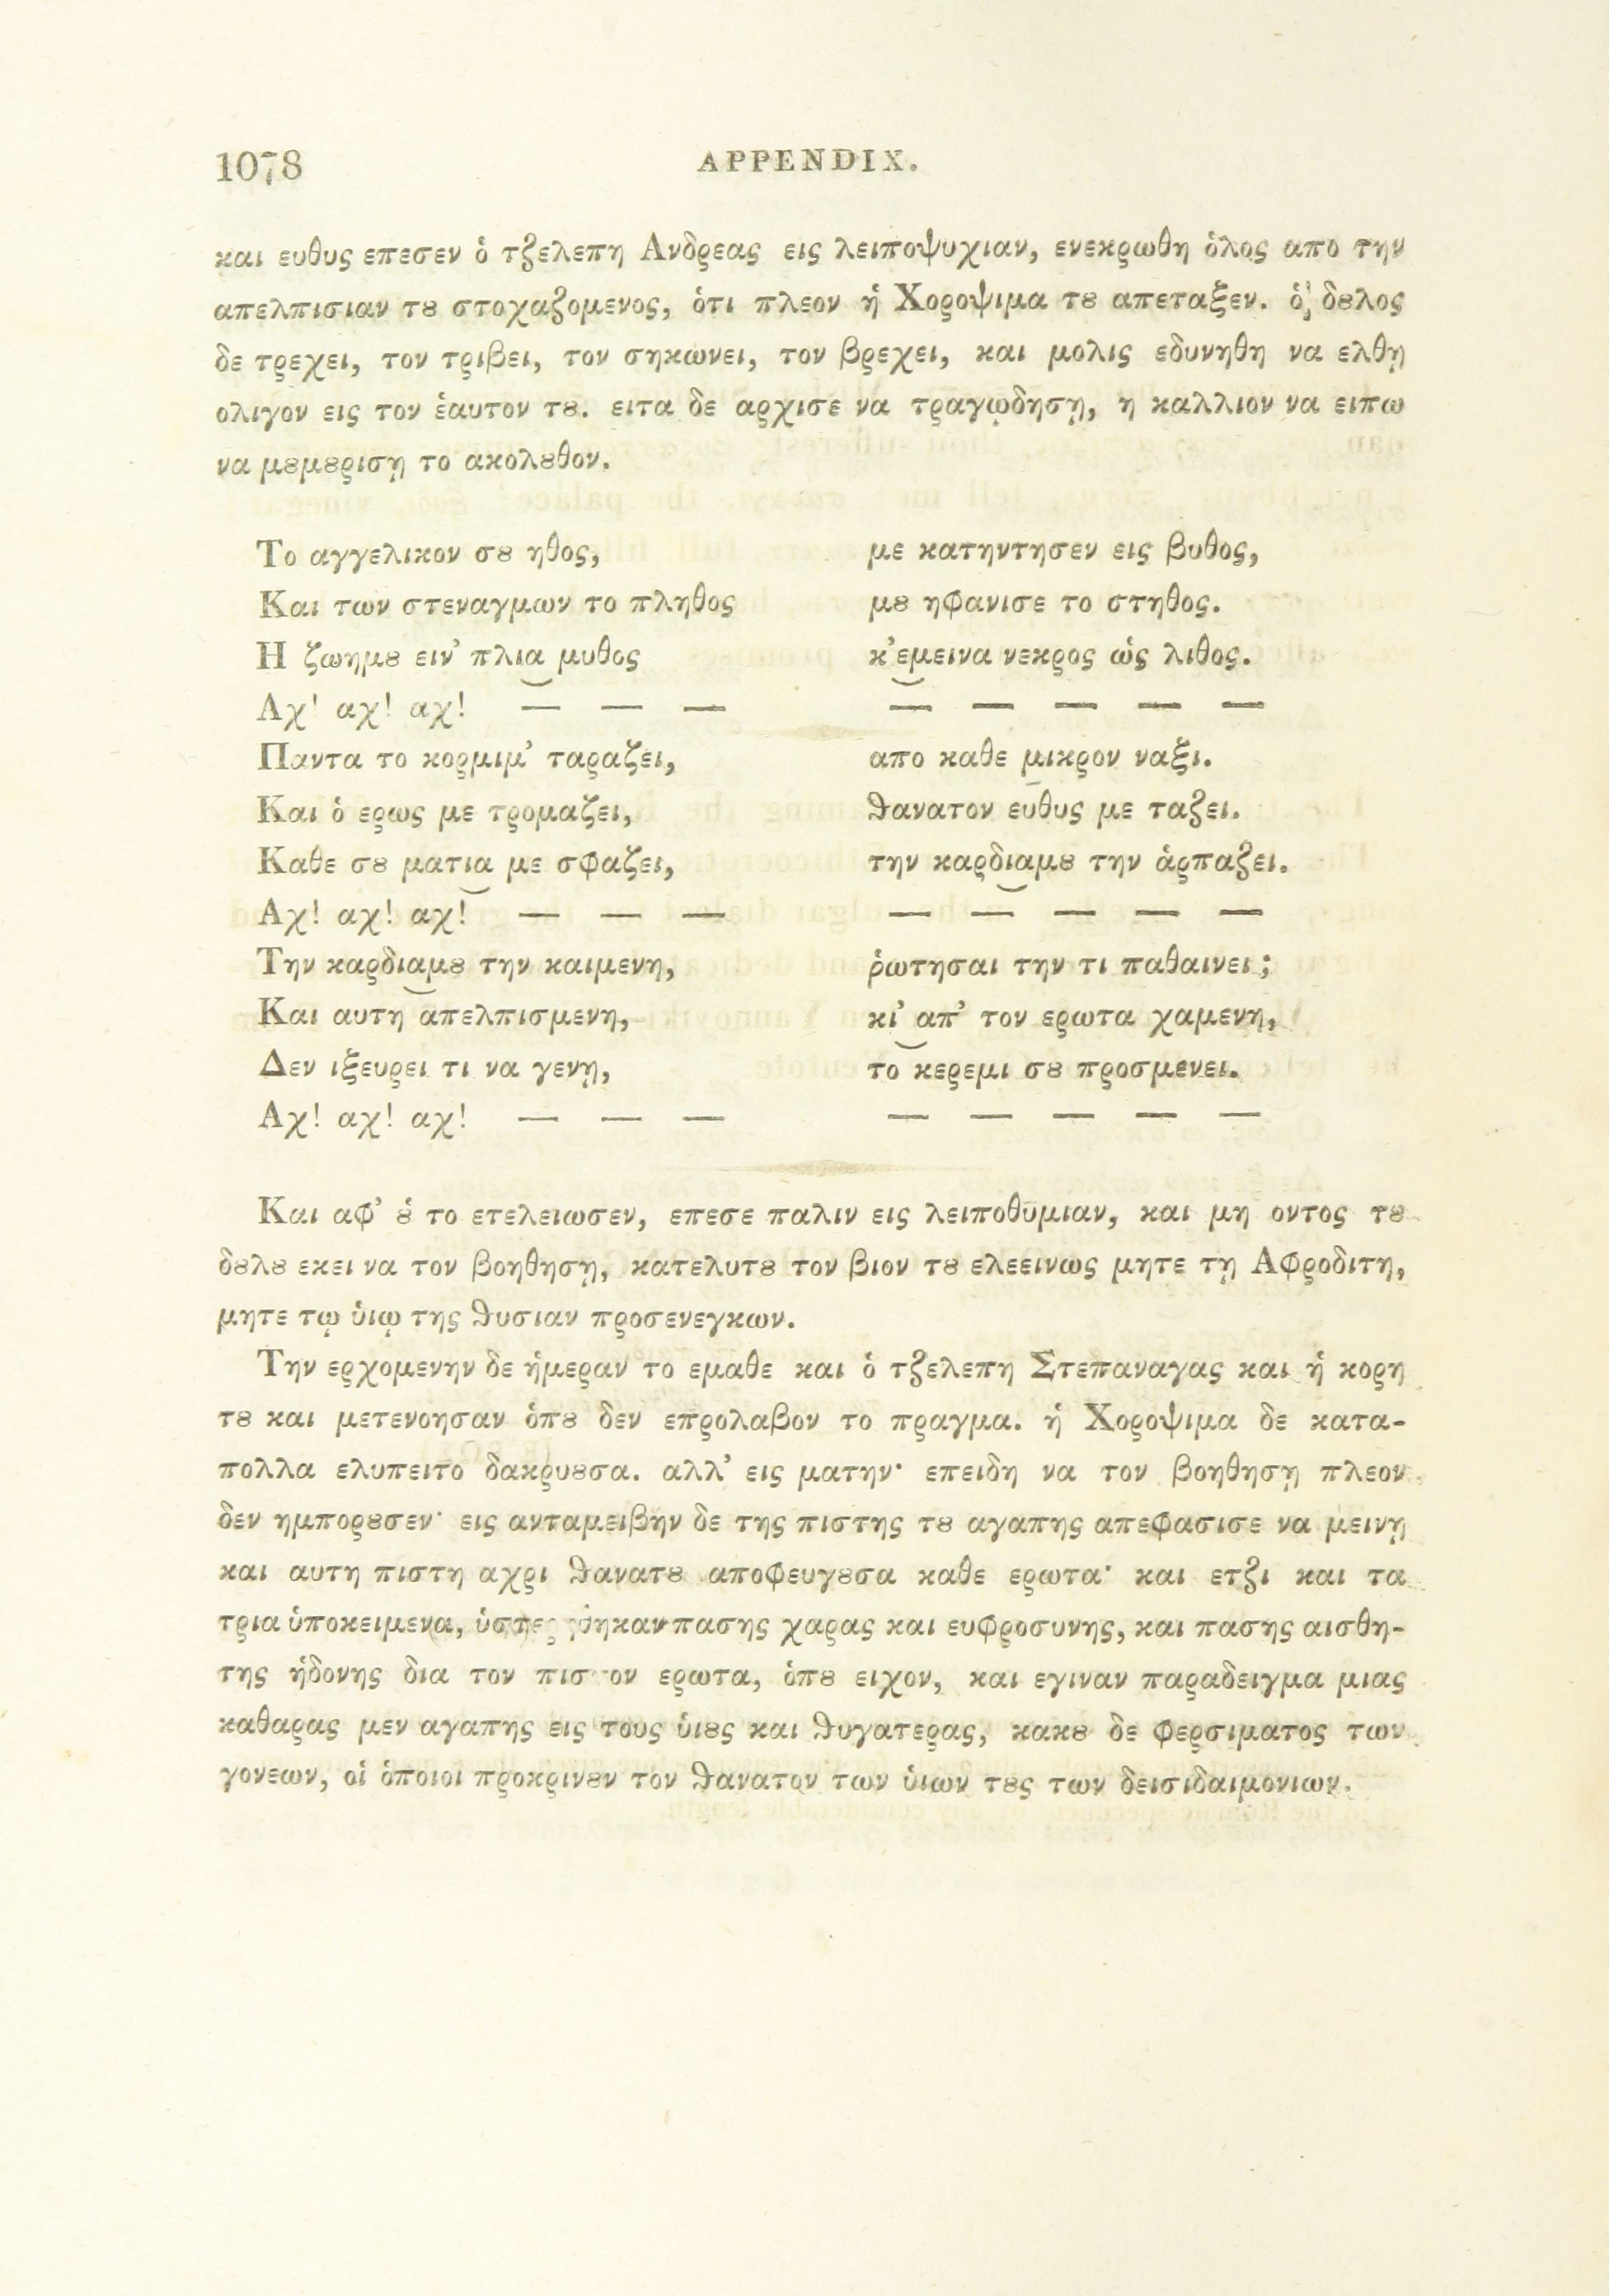 1078 APPENDIX.
και ευθυς επεσεν ὁ τζελεπη Ανδρεας εις λειποψυχιαν, ενεκρωθη ὁλος απο την
απελπισιαν τȣ στοχαζομενος, ὁτι πλεον ἡ Χοροψιμα τȣ απεταξεν. ὁ δȣλος
δε τρεχει, τον τριβει, τον σηκωνει, τον βρεχει, και μολις εδυνηθη να ελθῃ
ολιγον εις τον ἑαυτον τȣ. ειτα δε αρχισε να τραγῳδησῃ, η καλλιον να ειπω
να μȣμȣρισῃ το ακολȣθον.
Το αγγελικον σȣ ηθος, με κατηντησεν εις βυθος,
Και των στεναγμων το πληθος μȣ ηφανισε το στηθος.
Η ζωημȣ ειν’ πλια μυθος κ’εμεινα νεκρος ὡς λιθος.
Αχ! αχ! αχ! — — — — — — — —
Παντα το κορμιμ’ ταραζει, απο καθε μικρον ναζι.
Και ὁ ερως με τρομαζει, θανατον ευθυς με ταζει.
Καθε σȣ ματια με σφαζει, την καρδιαμȣ την ἁρπαζει.
Αχ! αχ! αχ! — — — — — — — —
Την καρδιαμȣ την καιμενη, ῥωτησαι την τι παθαινει;
Και αυτη απελπισμενη, κι’ απ’ τον ερωτα χαμενη,
Δεν ιξευρει τι να γενῃ, το κερεμι σȣ προσμενει.
Αχ! αχ! αχ! — — — — — — — —
Και αφ’ ȣ̔ το ετελειωσεν, επεσε παλιν εις λειποθυμιαν, και μη οντος τȣ
δȣλȣ εκει να τον βοηθησῃ, κατελυτȣ τον βιον τȣ ελεεινως μητε τῃ Αφροδιτη,
μητε τῳ ὑιῳ της θυσιαν προσενεγκων.
Την ερχομενην δε ἡμεραν το εμαθε και ὁ τζελεπη Στεπαναγας και ἡ κορη
τȣ και μετενοησαν ὁπȣ δεν επρολαβον το πραγμα. ἡ Χοροψιμα δε κατα-
πολλα ελυπειτο δακρυȣσα. αλλ’ εις ματην· επειδη να τον βοηθησῃ πλεον
δεν ημπορȣσεν· εις ανταμειβην δε της πιστης τȣ αγαπης απεφασισε να μεινῃ
και αυτη πιστη αχρι θανατȣ αποφευγȣσα καθε ερωτα· και ετζι και τα
τρια ὑποκειμενα, πασης χαρας και ευφροσυνης, και πασης αισθη-
της ἡδονης δια τον πιστον ερωτα, ὁπȣ ειχον, και εγιναν παραδειγμα μιας
καθαρας μεν αγαπης εις τους ὑιȣς και θυγατερας, κακȣ δε φερσιματος των
γονεων, οἱ ὁποιοι προκρινȣν τον θανατον των ὑιων τȣς των δεισιδαιμονιων.